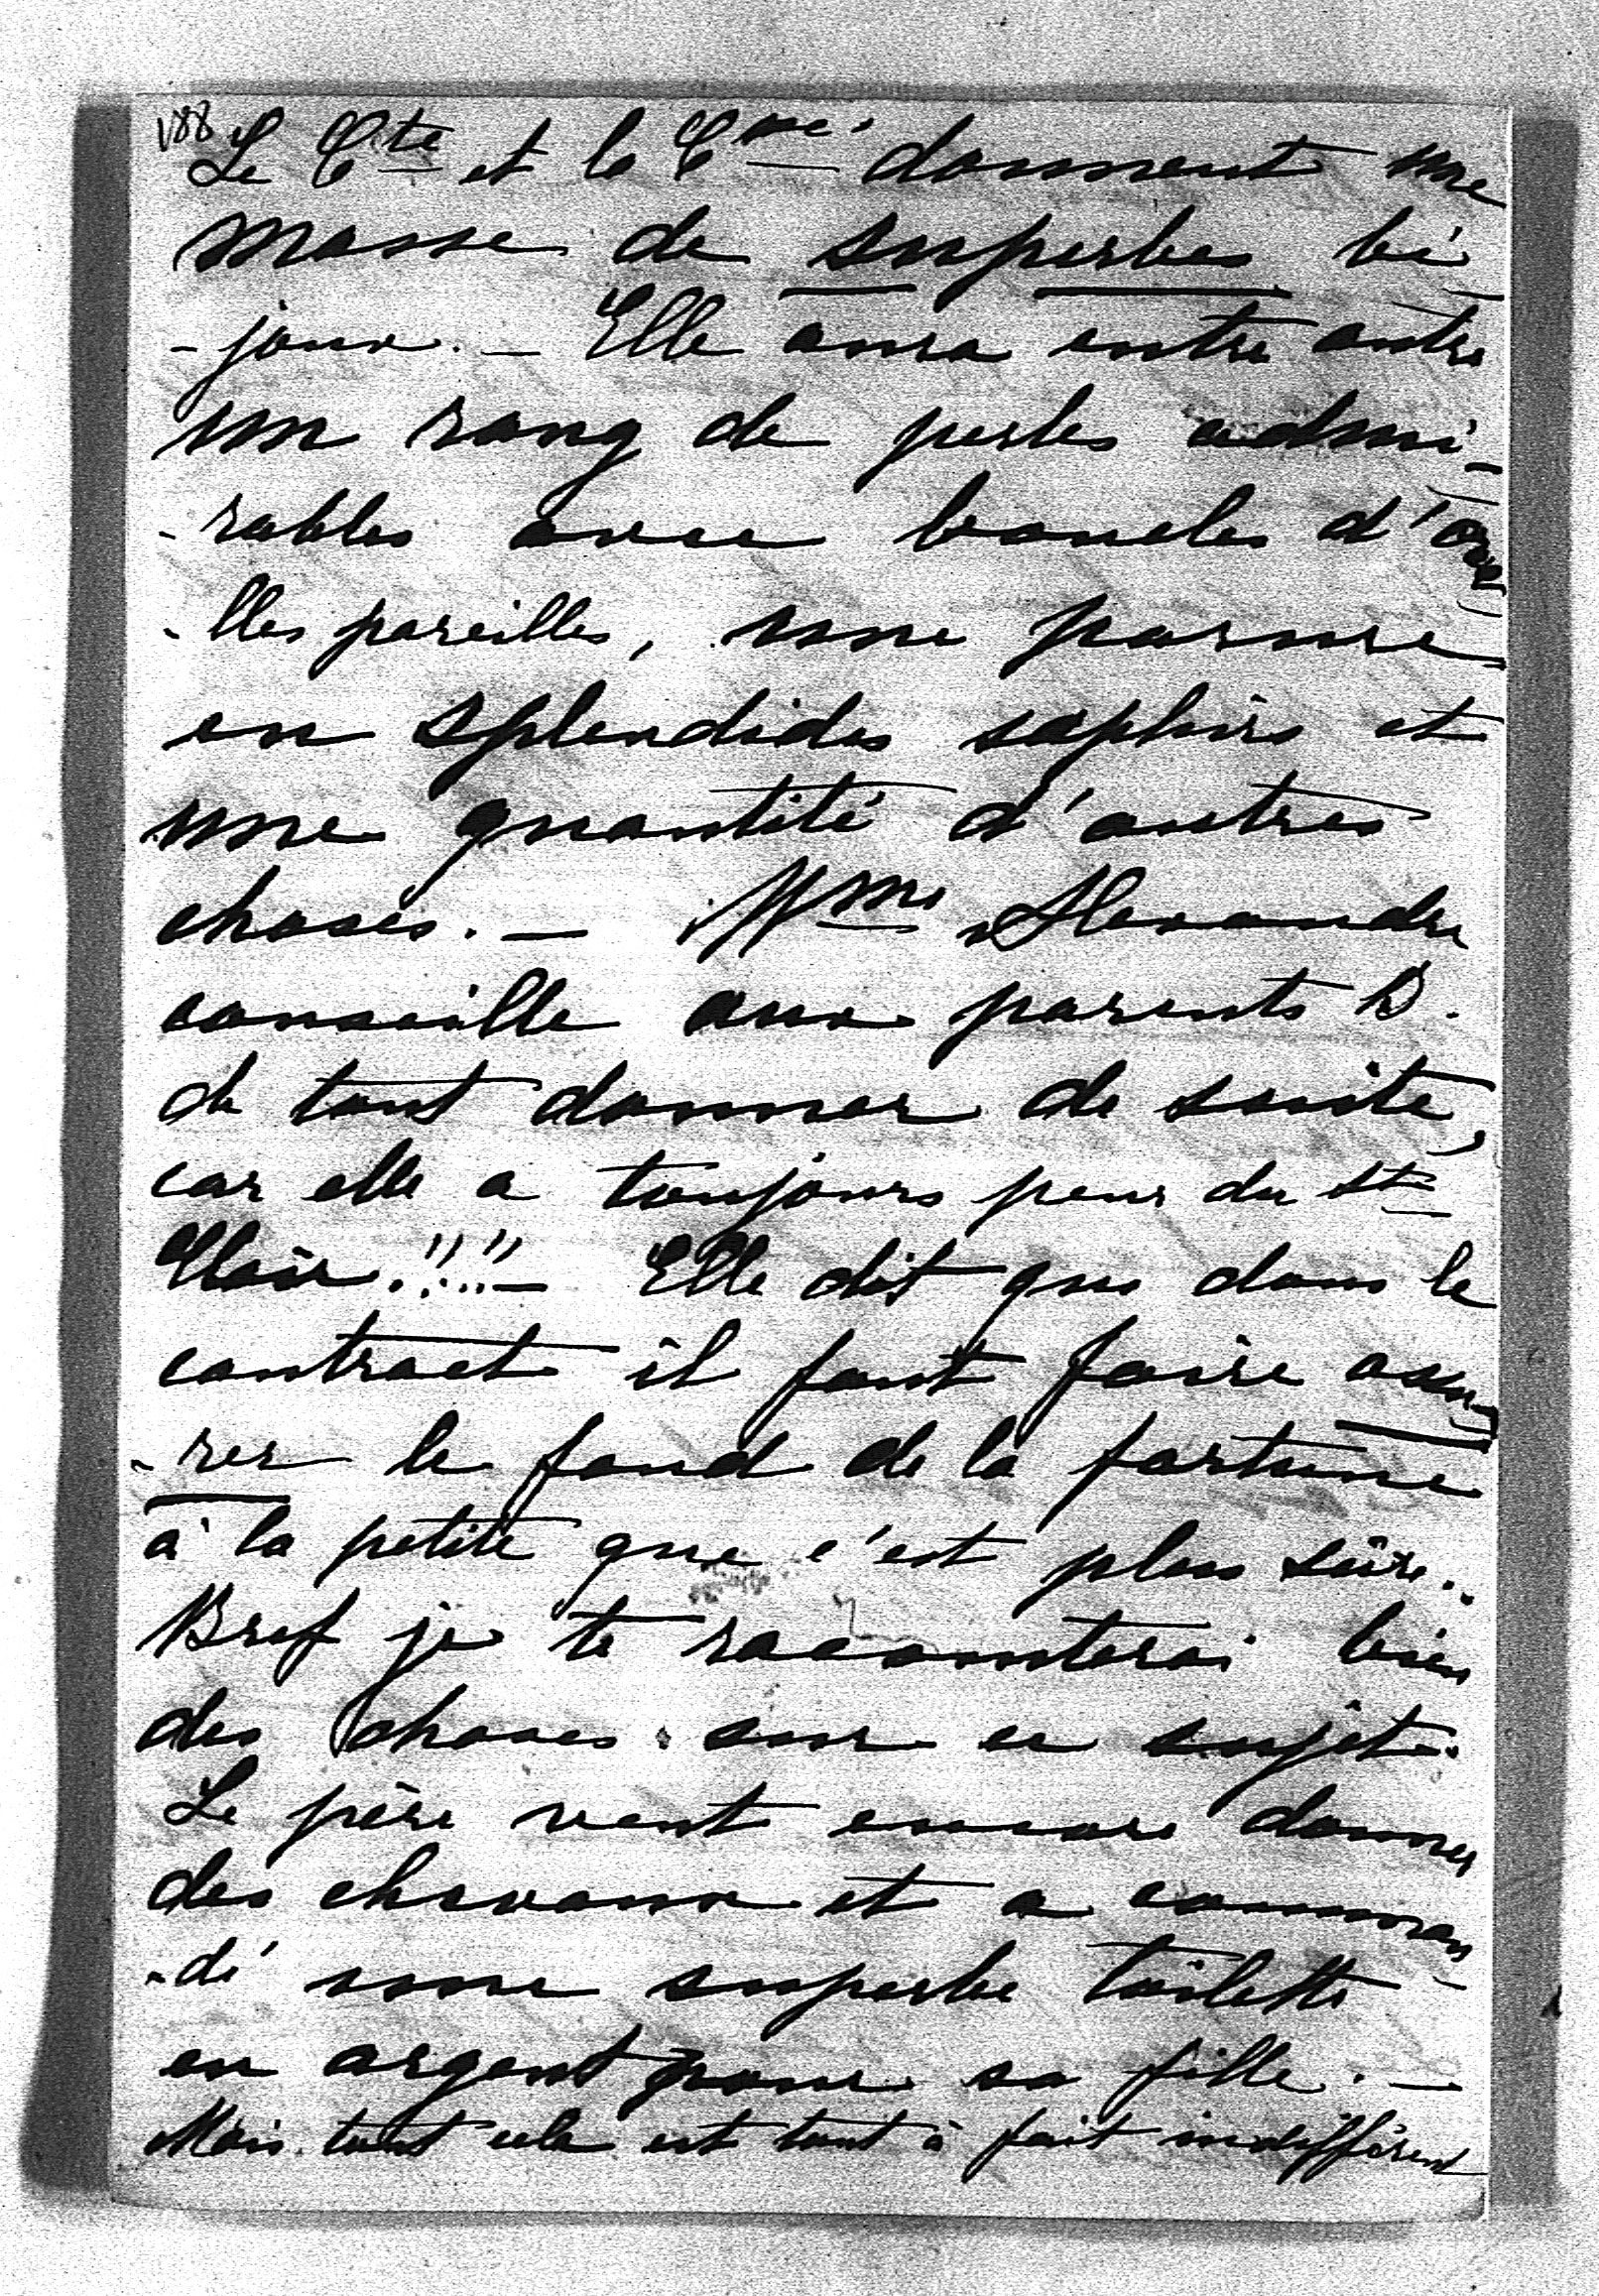 188
Le Cte et la Csse donnent une
masse de superbes bi
-joux. – Elle aura entre autre
un rang de perles admi-
-rables avec boucles d'orei
-lles pareilles, une parure
en splendides saphirs et
une quantité d'autres
choses. – Mme Alexandre
conseille aux parents B.
de tout donner de suite,
car elle a toujours peur du St
Clair.!!!! – Elle dit que dans le
contract il faut faire assu-
-rer le fond de la fortune
à la petite que c'est plus sûre.
Bref je te raconterai bien
des choses sur ce sujet.
Le père veut encore donner
des chevaux et a comman
-dé une superbe toilette
en argent pour sa fille. –
Mais tout cela est tout à fait indifférent